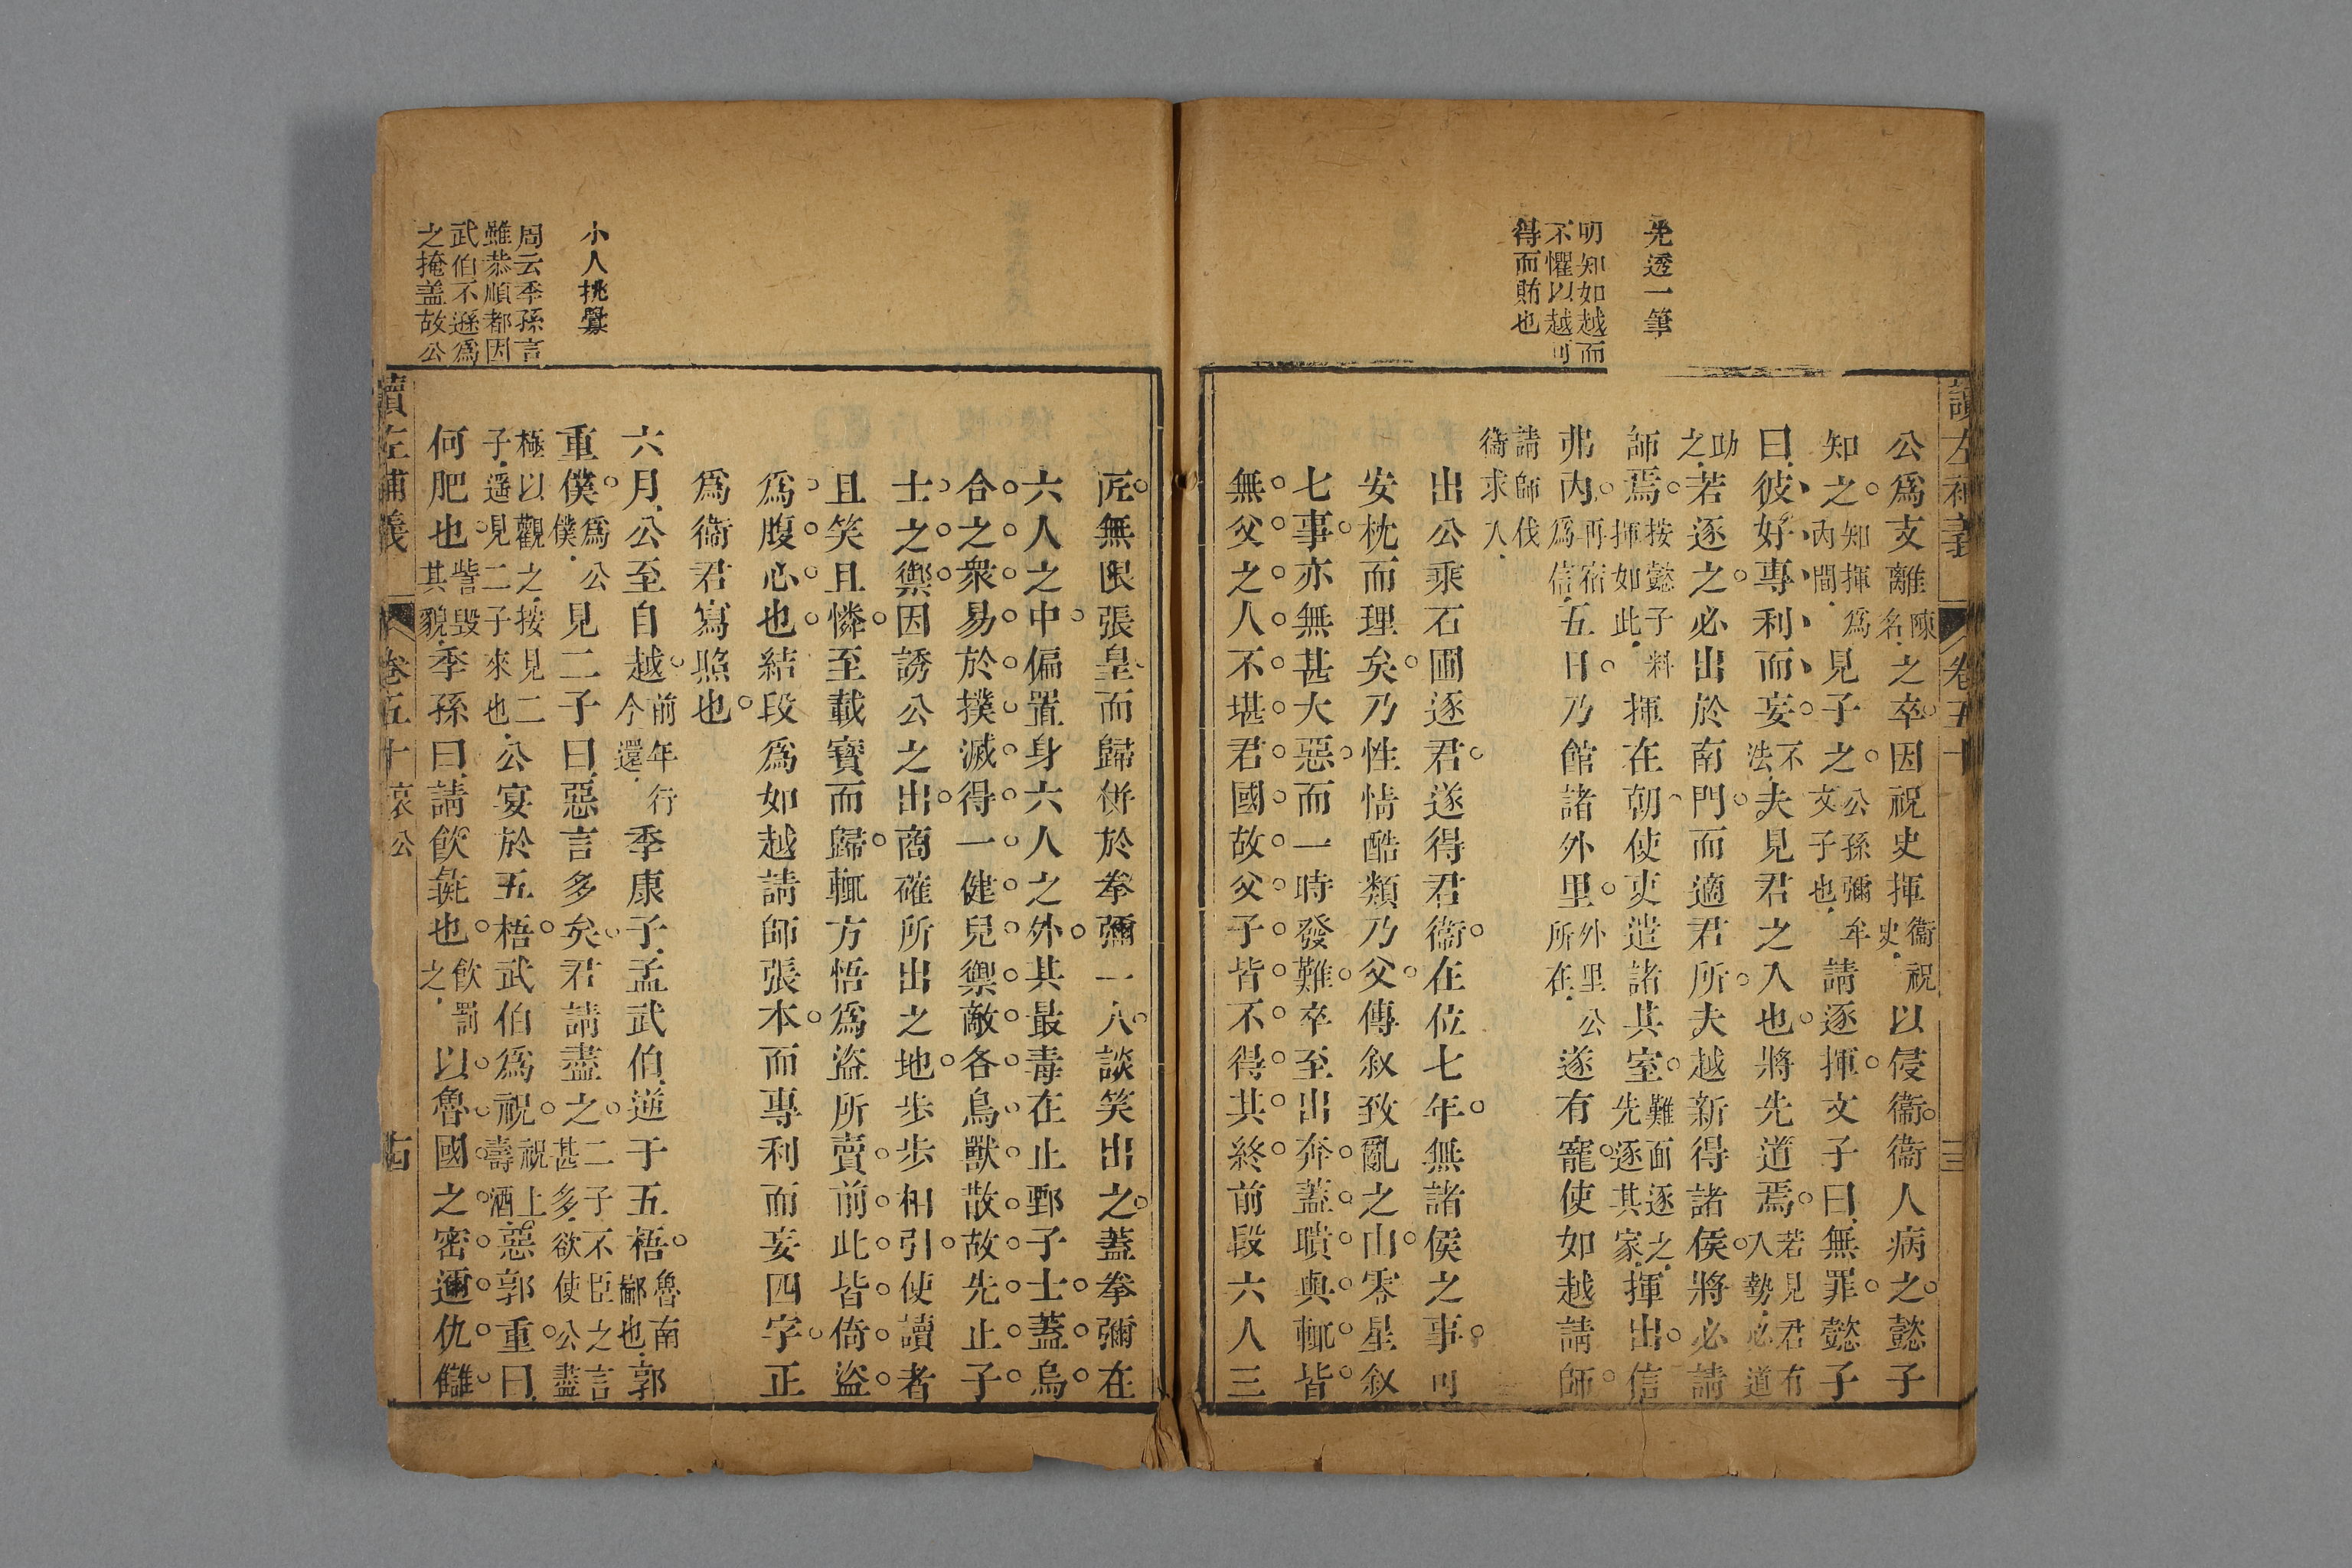 讀左補義
卷五十
三
先透一筆
明知如越而
不懼以越可
得而賄也
公爲支離陳名之卒因祝史揮衞祝史以侵衞衞人病之懿子
知之知揮爲內間見子之公孫彌牟文子也請逐揮文子曰無罪懿子
曰彼好專利而妄不法夫見君之入也將先道焉若見君有入勢必道
助之若逐之必出於南門而適君所夫越新得諸侯將必請
師焉按懿子料揮如此揮在朝使吏遣諸其室難面逐之先逐其家揮出信
弗內再宿爲信五日乃館諸外里外里公所在遂有寵使如越請師
請師伐衞求入
出公乘石圃逐君遂得君衞在位七年無諸侯之事可
安枕而理矣乃性情酷類乃父傳叙致亂之由零星叙
七事亦無甚大惡而一時發難卒至出奔蓋聵輿輒皆
無父之人不堪君國故父子皆不得其終前段六人三
匠無限張皇而歸併於拳彌一人談笑出之蓋拳彌在
六人之中偏置身六人之外其最毒在止鄄子士蓋烏
合之衆易於撲滅得一健兒禦敵各鳥獸散故先止子
士之禦因誘公之出商確所出之地步步相引使讀者
且笑且憐至載寶而歸輒方悟爲盜所賣前此皆倚盜
爲腹心也結段爲如越請師張本而專利而妄四字正
爲衞君寫照也
六月公至自越前年行今還季康子孟武伯逆于五梧魯南鄙也郭
重僕爲公僕見二子曰惡言多矣君請盡之二子不臣之言甚多欲使公盡
極以觀之按見二子遥見二子來也公宴於五梧武伯爲祝祝上壽酒惡郭重曰
何肥也訾毀其貌季孫曰請飲彘也飲罰之以魯國之密邇仇讎
小人挑釁
周云季孫言
雖恭順都因
武伯不遜爲
之掩盖故公
讀左補義
卷五十哀公